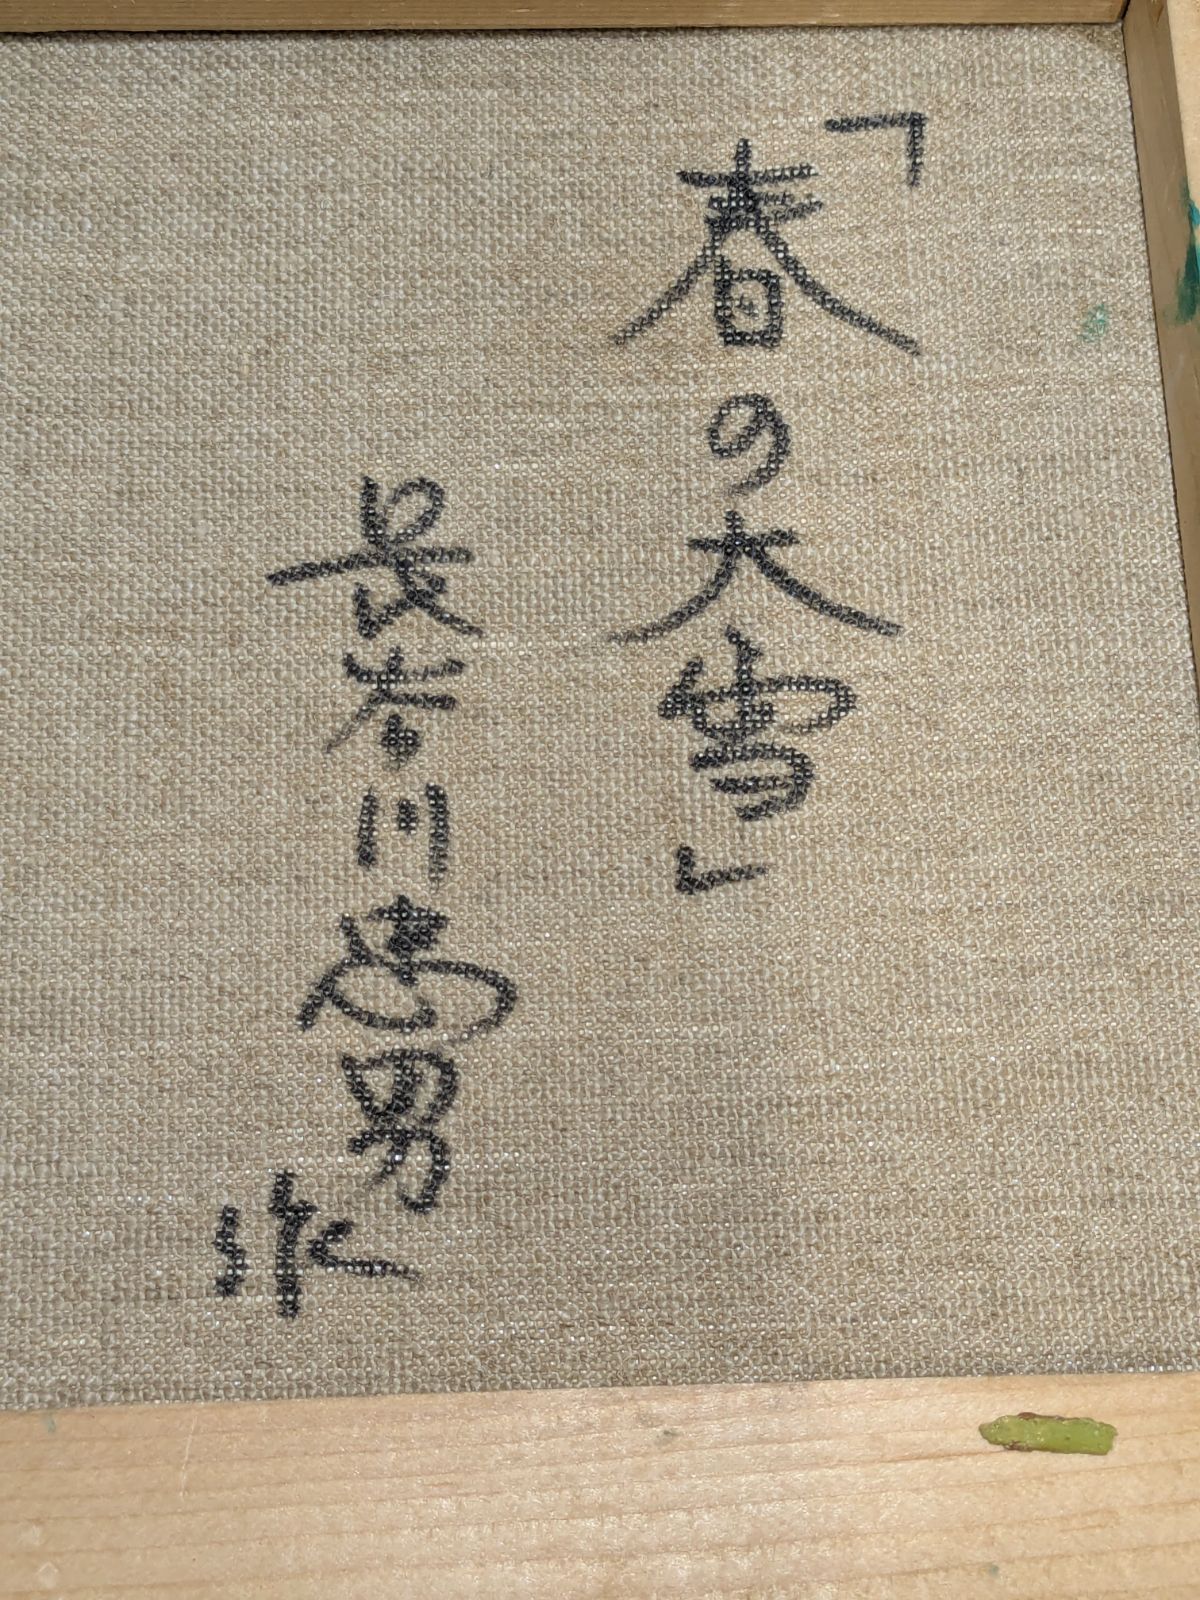 「春の大雪」
長谷川忠男
作